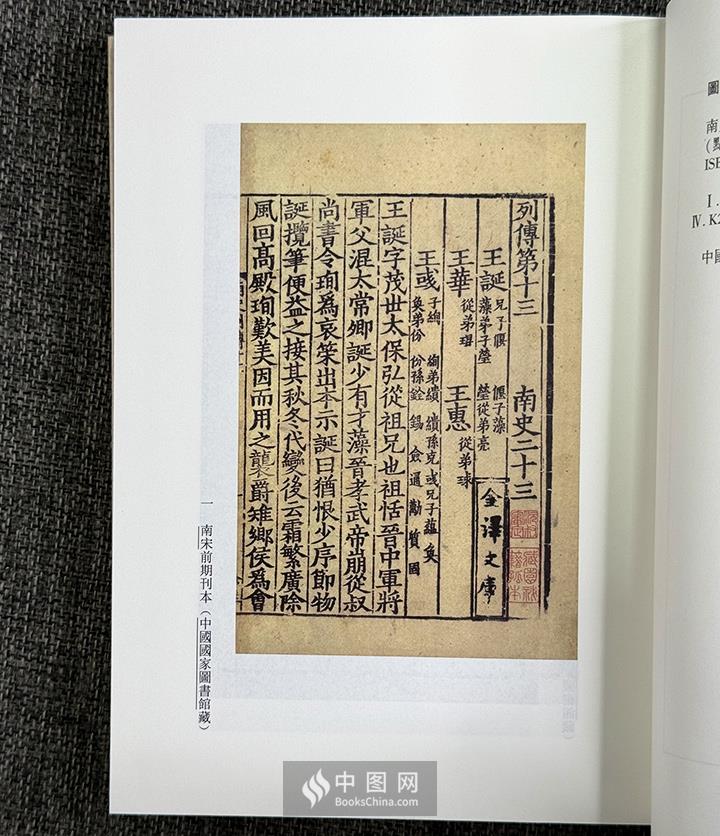 列傳第十三 南史二十三
王誕 兄子偃 偃子藻
藻弟子瑩 瑩從弟亮
王華 從弟琨 王惠 從弟球
王彧 子絢 絢弟繢 繢孫克 彧兄子蘊 奐
奐弟份 份孫銓 錫 僉 通 勱 質 固
金澤文庫
王誕字茂世太保弘從祖兄也祖恬晉中軍將
軍父混太常卿誕少有才藻晉孝武帝崩從叔
尚書令珣爲哀策出本示誕曰猶恨少序節物
誕攬筆便益之接其秋冬代變後云霜繁廣除
風回高殿珣歎美因而用之襲爵雉鄉侯爲會
一 南宋前期刊本（中國國家圖書館藏）
圖
南
（點
ISB
Ⅰ.
Ⅳ. K2
中國
中图网
BooksChina.com